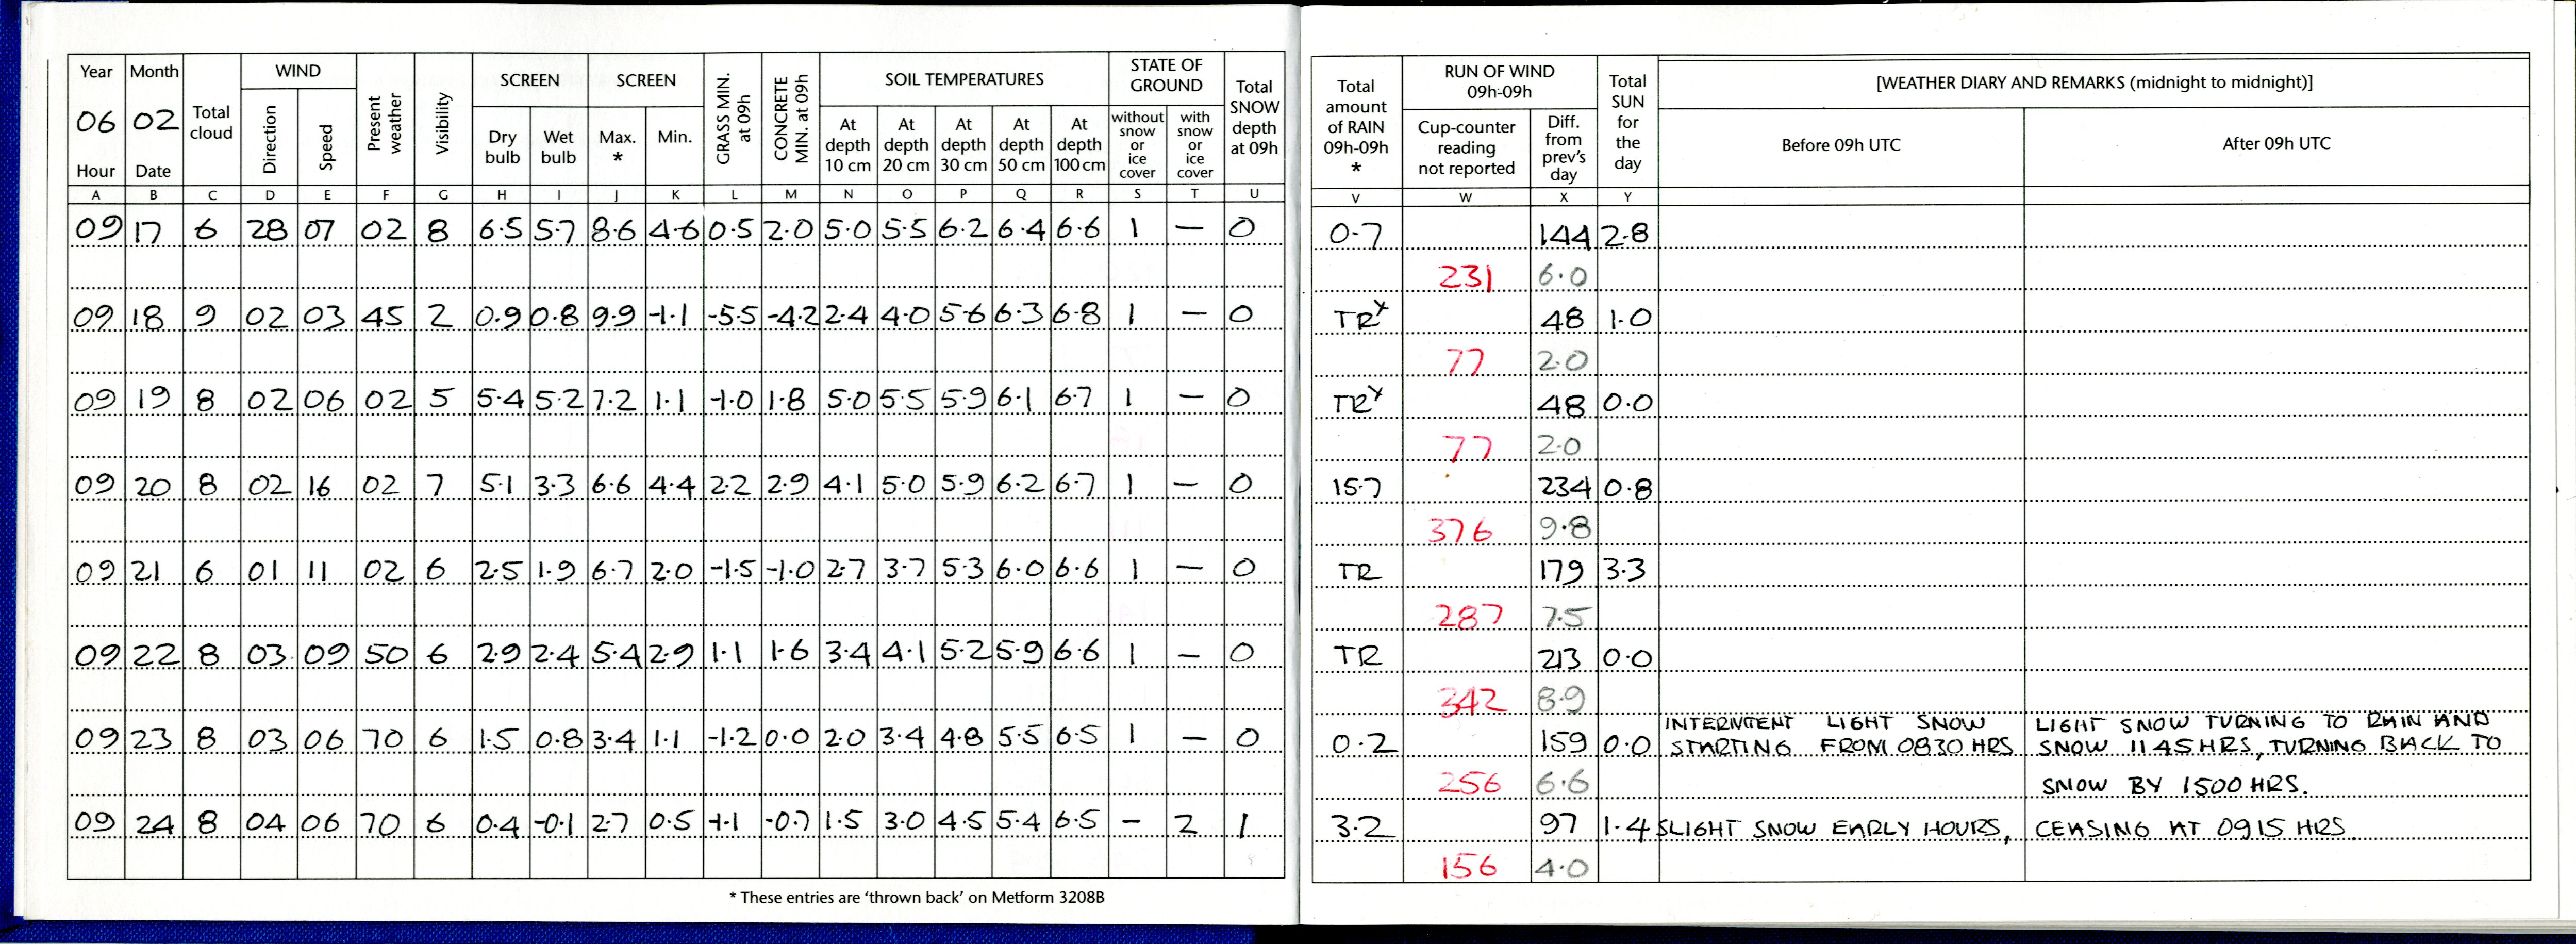 Year Month Total cloud WIND Present weather Visibility SCREEN SCREEN GRASS MIN. at 09h CONCRETE MIN. at 09h SOIL TEMPERATURES STATE OF GROUND Total SNOW depth at 09h
06 02 Direction Speed Dry bulb Wet bulb Max. * Min. At depth 10 cm At depth 20 cm At depth 30 cm At depth 50 cm At depth 100 cm without snow or ice cover with snow or ice cover
Hour Date
A B C D E F G H I J K L M N O P Q R S T U
09 17 6 28 07 02 8 6.5 5.7 8.6 4.6 0.5 2.0 5.0 5.5 6.2 6.4 6.6 1 — 0
09 18 9 02 03 45 2 0.9 0.8 9.9 -1.1 -5.5 -4.2 2.4 4.0 5.6 6.3 6.8 1 — 0
09 19 8 02 06 02 5 5.4 5.2 7.2 1.1 -1.0 1.8 5.0 5.5 5.9 6.1 6.7 1 — 0
09 20 8 02 16 02 7 5.1 3.3 6.6 4.4 2.2 2.9 4.1 5.0 5.9 6.2 6.7 1 — 0
09 21 6 01 11 02 6 2.5 1.9 6.7 2.0 -1.5 -1.0 2.7 3.7 5.3 6.0 6.6 1 — 0
09 22 8 03 09 50 6 2.9 2.4 5.4 2.9 1.1 1.6 3.4 4.1 5.2 5.9 6.6 1 — 0
09 23 8 03 06 70 6 1.5 0.8 3.4 1.1 -1.2 0.0 2.0 3.4 4.8 5.5 6.5 1 — 0
09 24 8 04 06 70 6 0.4 -0.1 2.7 0.5 -1.1 -0.7 1.5 3.0 4.5 5.4 6.5 — 2 1
* These entries are 'thrown back' on Metform 3208B
Total amount of RAIN 09h-09h * RUN OF WIND 09h-09h Total SUN for the day [WEATHER DIARY AND REMARKS (midnight to midnight)]
Cup-counter reading not reported Diff. from prev's day Before 09h UTC After 09h UTC
V W X Y
0.7 144 2.8
231 6.0
TR 48 1.0
77 2.0
TR 48 0.0
77 2.0
15.7 234 0.8
376 9.8
TR 179 3.3
287 7.5
TR 213 0.0
342 8.9
INTERMITENT LIGHT SNOW LIGHT SNOW TURNING TO RAIN AND
0.2 159 0.0 STARTING FROM 0830 HRS SNOW 1145 HRS, TURNING BACK TO
256 6.6 SNOW BY 1500 HRS.
3.2 97 1.4 SLIGHT SNOW EARLY HOURS, CEASING AT 0915 HRS.
156 4.0